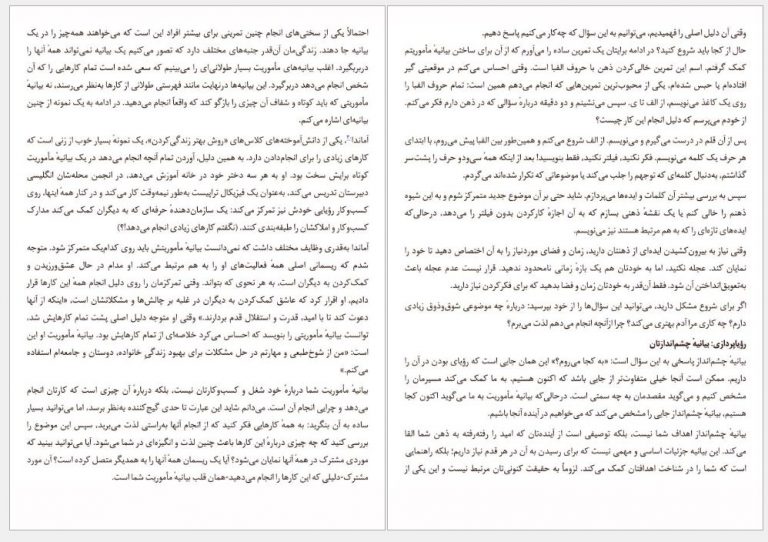 احتمالاً یکی از سختی‌های انجام چنین تمرینی برای بیشتر افراد این است که می‌خواهند همه‌چیز را در یک
بیانیه جا دهند. زندگی‌مان آن‌قدر جنبه‌های مختلف دارد که تصور می‌کنیم یک بیانیه نمی‌تواند همهٔ آنها را
دربرگیرد. اغلب بیانیه‌های مأموریت بسیار طولانی‌ای را می‌بینیم که سعی شده است تمام کارهایی را که آن
شخص انجام می‌دهد دربرگیرد. این بیانیه‌ها درنهایت مانند فهرستی طولانی از کارها به‌نظر می‌رسند، نه بیانیهٔ
مأموریتی که باید کوتاه و شفاف آن چیزی را بازگو کند که واقعاً انجام می‌دهید. در ادامه به یک نمونه از چنین
بیانیه‌ای اشاره می‌کنم.
آماندا، یکی از دانش‌آموخته‌های کلاس‌های «روش بهتر زندگی‌کردن»، یک نمونهٔ بسیار خوب از زنی است که
کارهای زیادی را برای انجام‌دادن دارد. به همین دلیل، آوردن تمام آنچه انجام می‌دهد در یک بیانیهٔ مأموریت
کوتاه برایش سخت بود. او به هر سه دختر خود در خانه آموزش می‌دهد، در انجمن محله‌شان انگلیسی
دبیرستان تدریس می‌کند، به‌عنوان یک فیزیکال تراپیست به‌طور نیمه‌وقت کار می‌کند و در کنار همهٔ اینها، روی
کسب‌وکار رؤیایی خودش نیز تمرکز می‌کند: یک سازمان‌دهندهٔ حرفه‌ای که به دیگران کمک می‌کند مدارک
کسب‌وکار و املاکشان را طبقه‌بندی کنند. (نگفتم کارهای زیادی انجام می‌دهد!؟)
آماندا به‌قدری وظایف مختلف داشت که نمی‌دانست بیانیهٔ مأموریتش باید روی کدام‌یک متمرکز شود. متوجه
شدم که ریسمانی اصلی همهٔ فعالیت‌های او را به هم مرتبط می‌کند. او مدام در حال عشق‌ورزیدن و
کمک‌کردن به دیگران است، به هر نحوی که بتواند. وقتی تمرکزمان را روی دلیل انجام همهٔ این کارها قرار
دادیم، او اقرار کرد که عاشق کمک‌کردن به دیگران در غلبه بر چالش‌ها و مشکلاتشان است، «اینکه از آنها
دعوت کند تا با امید، قدرت و استقلال قدم بردارند.» وقتی او متوجه دلیل اصلی پشت تمام کارهایش شد،
توانست بیانیهٔ مأموریتی را بنویسد که احساس می‌کرد خلاصه‌ای از تمام کارهایش بود. بیانیهٔ مأموریت او این
است: «من از شوخ‌طبعی و مهارتم در حل مشکلات برای بهبود زندگیِ خانواده، دوستان و جامعه‌ام استفاده
می‌کنم.»
بیانیهٔ مأموریت شما دربارهٔ خود شغل و کسب‌وکارتان نیست، بلکه دربارهٔ آن چیزی است که کارتان انجام
می‌دهد و چرایی انجام آن است. می‌دانم شاید این عبارت تا حدی گیج‌کننده به‌نظر برسد، اما می‌توانید بسیار
ساده به آن بنگرید: به همهٔ کارهایی فکر کنید که از انجام آنها به‌راستی لذت می‌برید، سپس این موضوع را
بررسی کنید که چه چیزی دربارهٔ این کارها باعث چنین لذت و انگیزه‌ای در شما می‌شود. آیا می‌توانید ببینید که
موردی مشترک در همهٔ آنها نمایان می‌شود؟ آیا یک ریسمان همهٔ آنها را به همدیگر متصل کرده است؟ آن مورد
مشترک-دلیلی که این کارها را انجام می‌دهید-همان قلب بیانیهٔ مأموریت شما است.
وقتی آن دلیل اصلی را فهمیدیم، می‌توانیم به این سؤال که چه‌کار می‌کنیم پاسخ دهیم.
حال از کجا باید شروع کنید؟ در ادامه برایتان یک تمرین ساده را می‌آورم که از آن برای ساختن بیانیهٔ مأموریتم
کمک گرفتم. اسم این تمرین خالی‌کردن ذهن با حروف الفبا است. وقتی احساس می‌کنم در موقعیتی گیر
افتاده‌ام یا حبس شده‌ام، یکی از محبوب‌ترین تمرین‌هایی که انجام می‌دهم همین است: تمام حروف الفبا را
روی یک کاغذ می‌نویسم، از الف تا ی. سپس می‌نشینم و دو دقیقه دربارهٔ سؤالی که در ذهن دارم فکر می‌کنم.
از خودم می‌پرسم که دلیل انجام این کار چیست؟
پس از آن قلم در دست می‌گیرم و می‌نویسم. از الف شروع می‌کنم و همین‌طور بین الفبا پیش می‌روم، با ابتدای
هر حرف یک کلمه می‌نویسم. فکر نکنید، فیلتر نکنید، فقط بنویسید! بعد از اینکه همهٔ سی‌ودو حرف را پشت‌سر
گذاشتم، به‌دنبال کلمه‌ای که توجهم را جلب می‌کند یا موضوعاتی که تکرار شده‌اند می‌گردم.
سپس به بررسی بیشتر آن کلمات و ایده‌ها می‌پردازم. شاید حتی بر آن موضوع جدید متمرکز شوم و به این شیوه
ذهنم را خالی کنم یا یک نقشهٔ ذهنی بسازم که به آن اجازهٔ کارکردن بدون فیلتر را می‌دهد، درحالی‌که
ایده‌های تازه‌ای را که به هم مرتبط هستند نیز می‌نویسم.
وقتی نیاز به بیرون‌کشیدن ایده‌ای از ذهنتان دارید، زمان و فضای موردنیاز را به آن اختصاص دهید تا خود را
نمایان کند. عجله نکنید، اما به خودتان هم یک بازهٔ زمانی نامحدود ندهید. قرار نیست عدم عجله باعث
به‌تعویق‌انداختن آن شود. فقط آن‌قدر به خودتان زمان و فضا بدهید که برای فکرکردن نیاز دارید.
اگر برای شروع مشکل دارید، می‌توانید این سؤال‌ها را از خود بپرسید: دربارهٔ چه موضوعی شوق‌وذوق زیادی
دارم؟ چه کاری مرا آدم بهتری می‌کند؟ چرا ازآنچه انجام می‌دهم لذت می‌برم؟
رؤیاپردازی: بیانیهٔ چشم‌اندازتان
بیانیهٔ چشم‌انداز پاسخی به این سؤال است: «به کجا می‌روم؟» این همان جایی است که رؤیای بودن در آن را
داریم. ممکن است آنجا خیلی متفاوت‌تر از جایی باشد که اکنون هستیم. به ما کمک می‌کند مسیرمان را
مشخص کنیم و می‌گوید مقصدمان به چه سمتی است. درحالی‌که بیانیهٔ مأموریت به ما می‌گوید اکنون کجا
هستیم، بیانیهٔ چشم‌انداز جایی را مشخص می‌کند که می‌خواهیم در آینده آنجا باشیم.
بیانیهٔ چشم‌انداز اهداف شما نیست، بلکه توصیفی است از آینده‌تان که امید را رفته‌رفته به ذهن شما القا
می‌کند. این بیانیه جزئیات اساسی و مهمی نیست که برای رسیدن به آن در هر قدم نیاز داریم؛ بلکه راهنمایی
است که شما را در شناخت اهدافتان کمک می‌کند. لزوماً به حقیقت کنونی‌تان مرتبط نیست و این یکی از